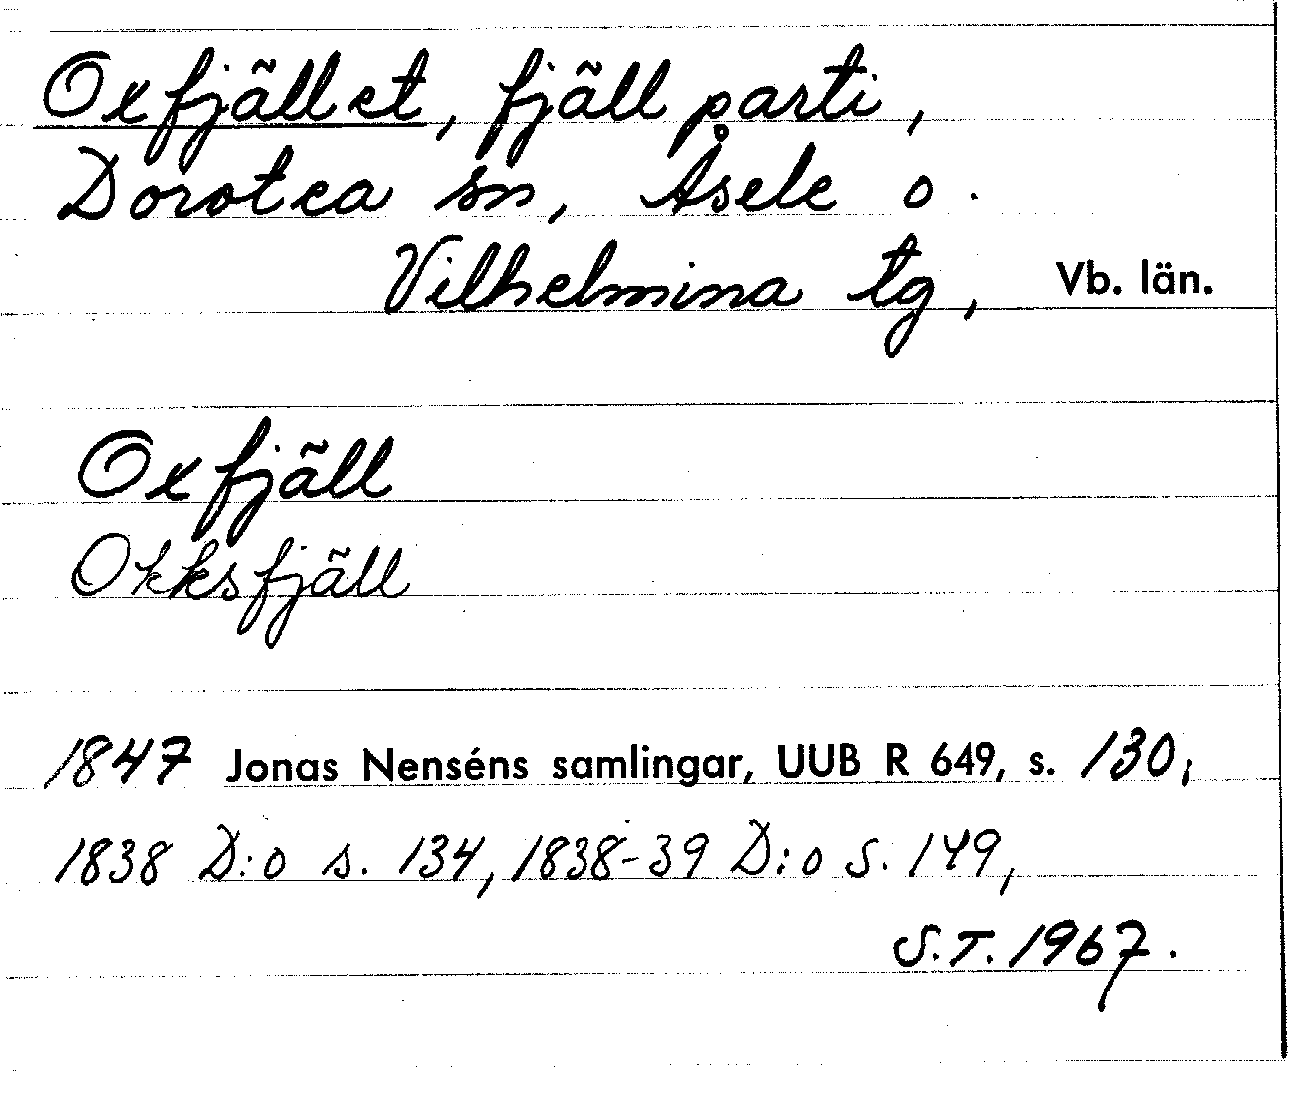 Oxfjället, fjällparti,
Dorotea sn, Åsele o.
Vilhelmina tg, Vb. län.
Oxfjäll
Okksfjäll
1847 Jonas Nenséns samlingar, UUB R 649, s. 130;
1838 D:o s. 134, 1838-39 D:o s. 149,
S.T. 1967.